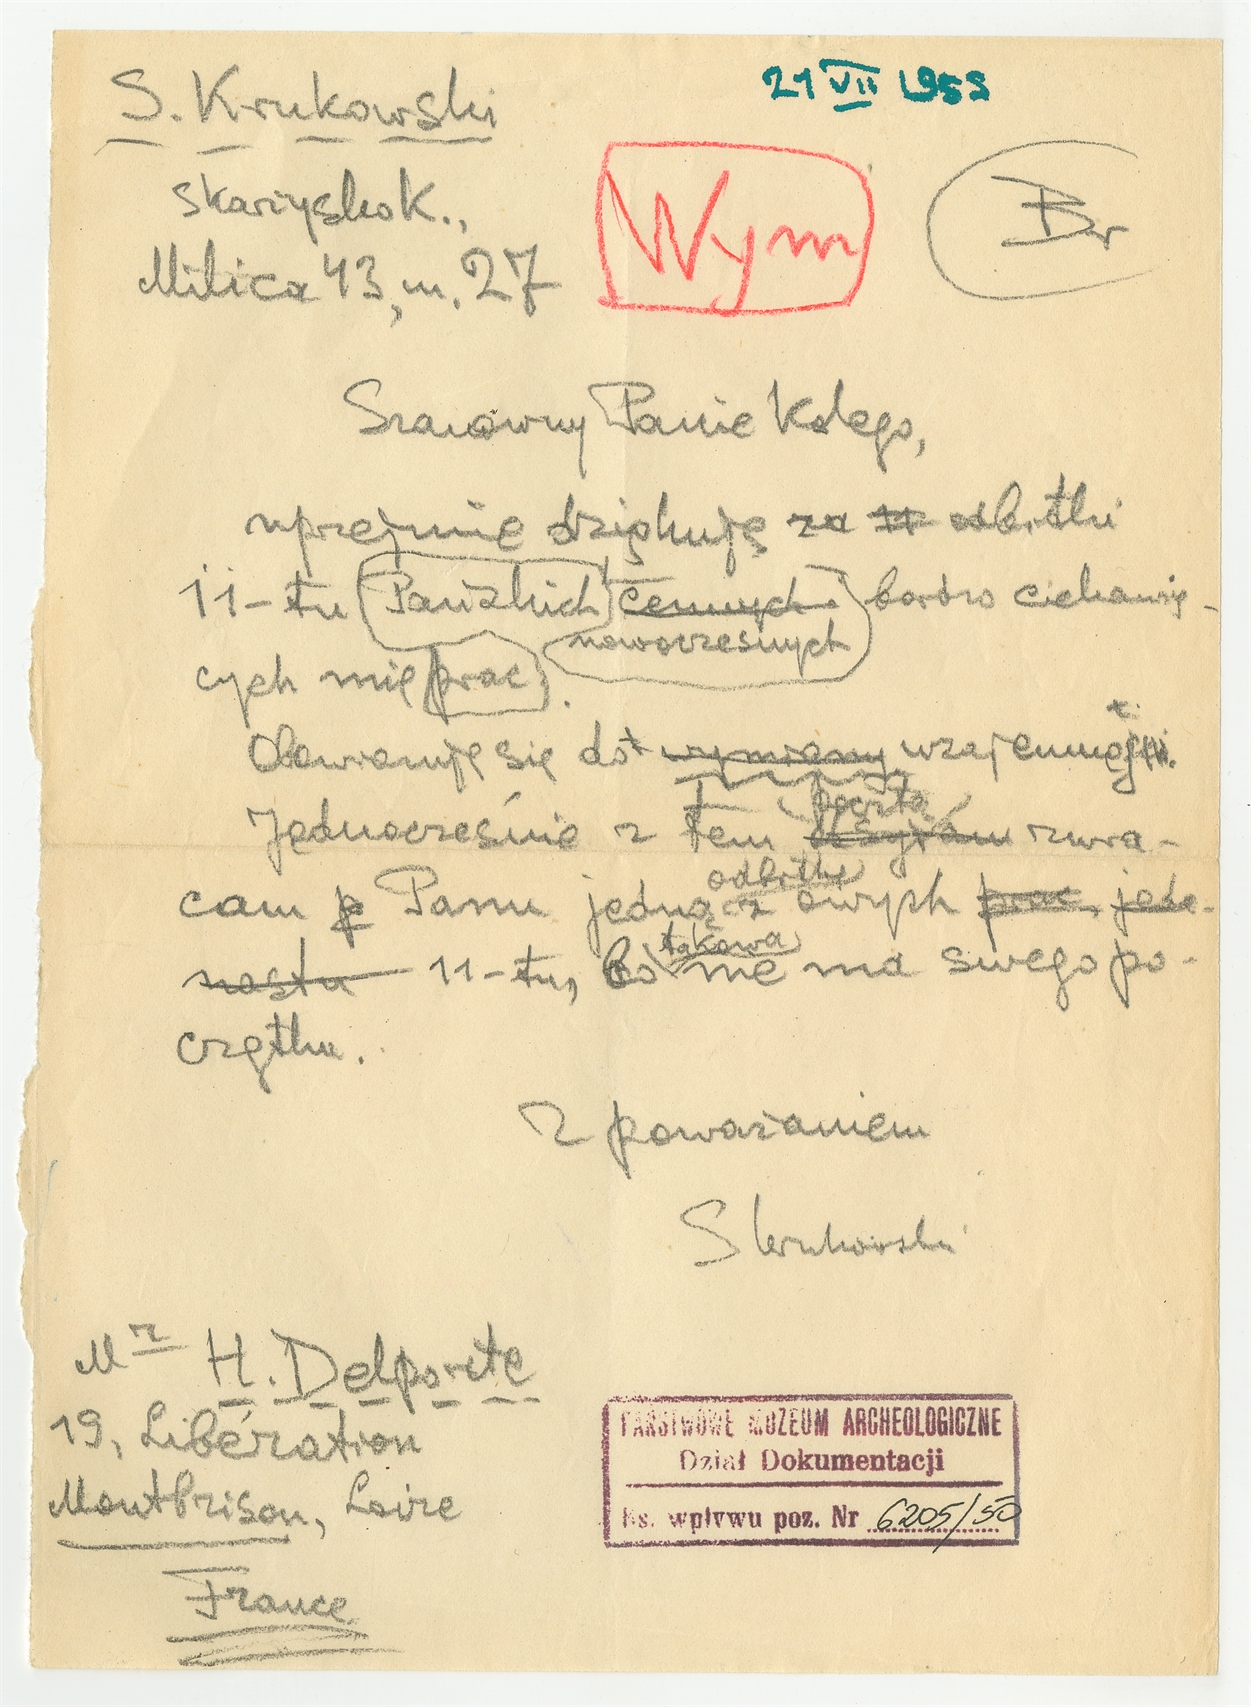 S. Krukowski
21 VII 1959
Skarżysko K.,
Milica 43, m. 27
Wym
Br
Szanowny Panie Kolego,
uprzejmie dziękuję za odbitki
11-tu Pańskich cennych bardzo ciekawią-
nowoczesnych
cych mię prac.
Obowiązuję się do wymiany wzajemności.
pocztą
Jednocześnie z tem zwra-
odbitkę
cam Panu jedną z owych prac, jede-
takowa
nastu 11-tu, bo nie ma swego po-
czątku.
Z poważaniem
S Krukowski
Mr H. Delporte
19, Libération
Montbrison, Loire
France
PAŃSTWOWE MUZEUM ARCHEOLOGICZNE
Dział Dokumentacji
Ks. wpływu poz. Nr 6205/50